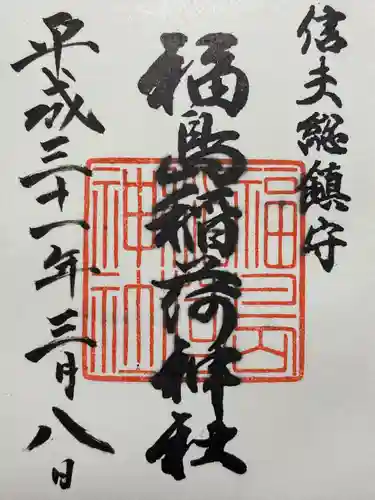 信夫総鎮守
福島稲荷神社
平成三十一年三月八日
福島稲荷神社